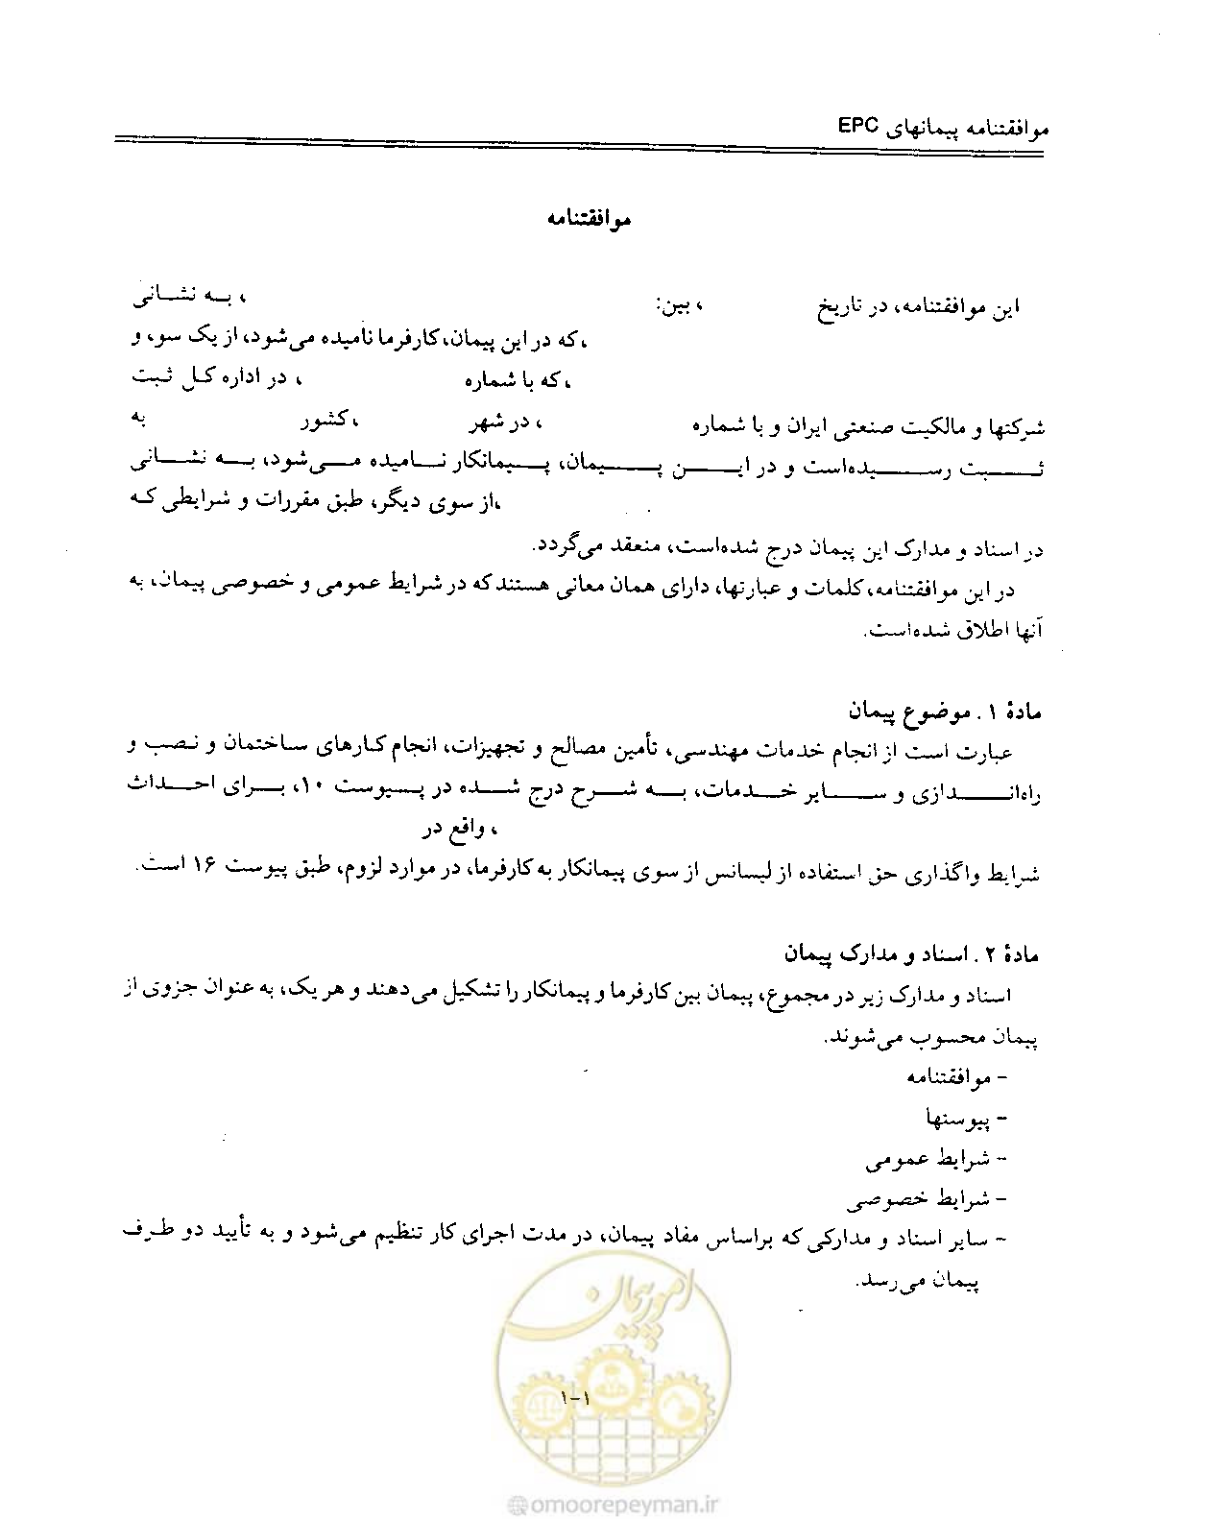 موافقتنامه پیمانهای EPC
موافقتنامه
این موافقتنامه، در تاریخ ، بین: ، به نشانی
، که در این پیمان، کارفرما نامیده می‌شود، از یک سو، و
، که با شماره ، در اداره کل ثبت
شرکتها و مالکیت صنعتی ایران و با شماره ، در شهر ، کشور به
ثبت رسیده‌است و در این پیمان، پیمانکار نامیده می‌شود، به نشانی
، از سوی دیگر، طبق مقررات و شرایطی که
در اسناد و مدارک این پیمان درج شده‌است، منعقد می‌گردد.
در این موافقتنامه، کلمات و عبارتها، دارای همان معانی هستند که در شرایط عمومی و خصوصی پیمان، به
آنها اطلاق شده‌است.
مادهٔ ۱ . موضوع پیمان
عبارت است از انجام خدمات مهندسی، تأمین مصالح و تجهیزات، انجام کارهای ساختمان و نصب و
راه‌اندازی و سایر خدمات، به شرح درج شده در پیوست ۱۰، برای احداث
، واقع در
شرایط واگذاری حق استفاده از لیسانس از سوی پیمانکار به کارفرما، در موارد لزوم، طبق پیوست ۱۶ است.
مادهٔ ۲ . اسناد و مدارک پیمان
اسناد و مدارک زیر در مجموع، پیمان بین کارفرما و پیمانکار را تشکیل می‌دهند و هر یک، به عنوان جزوی از
پیمان محسوب می‌شوند.
- موافقتنامه
- پیوستها
- شرایط عمومی
- شرایط خصوصی
- سایر اسناد و مدارکی که براساس مفاد پیمان، در مدت اجرای کار تنظیم می‌شود و به تأیید دو طرف
پیمان می‌رسد.
امور پیمان
۱-۱
@omoorepeyman.ir